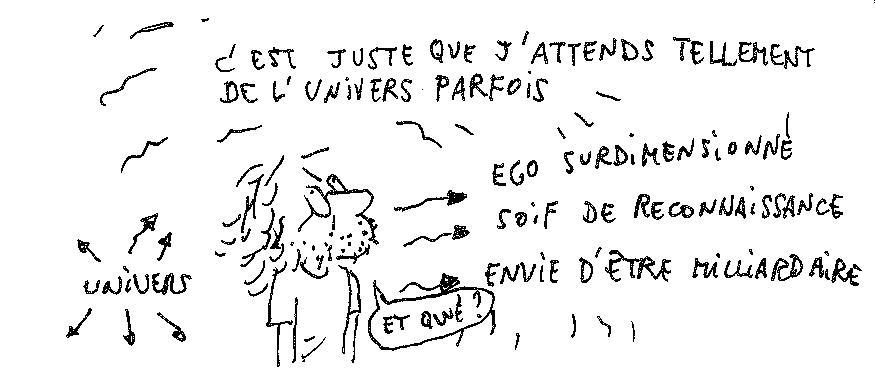 C'EST JUSTE QUE J'ATTENDS TELLEMENT
DE L'UNIVERS PARFOIS
EGO SURDIMENSIONNÉ
SOIF DE RECONNAISSANCE
ENVIE D'ÊTRE MILLIARDAIRE
UNIVERS
ET QUÉ ?